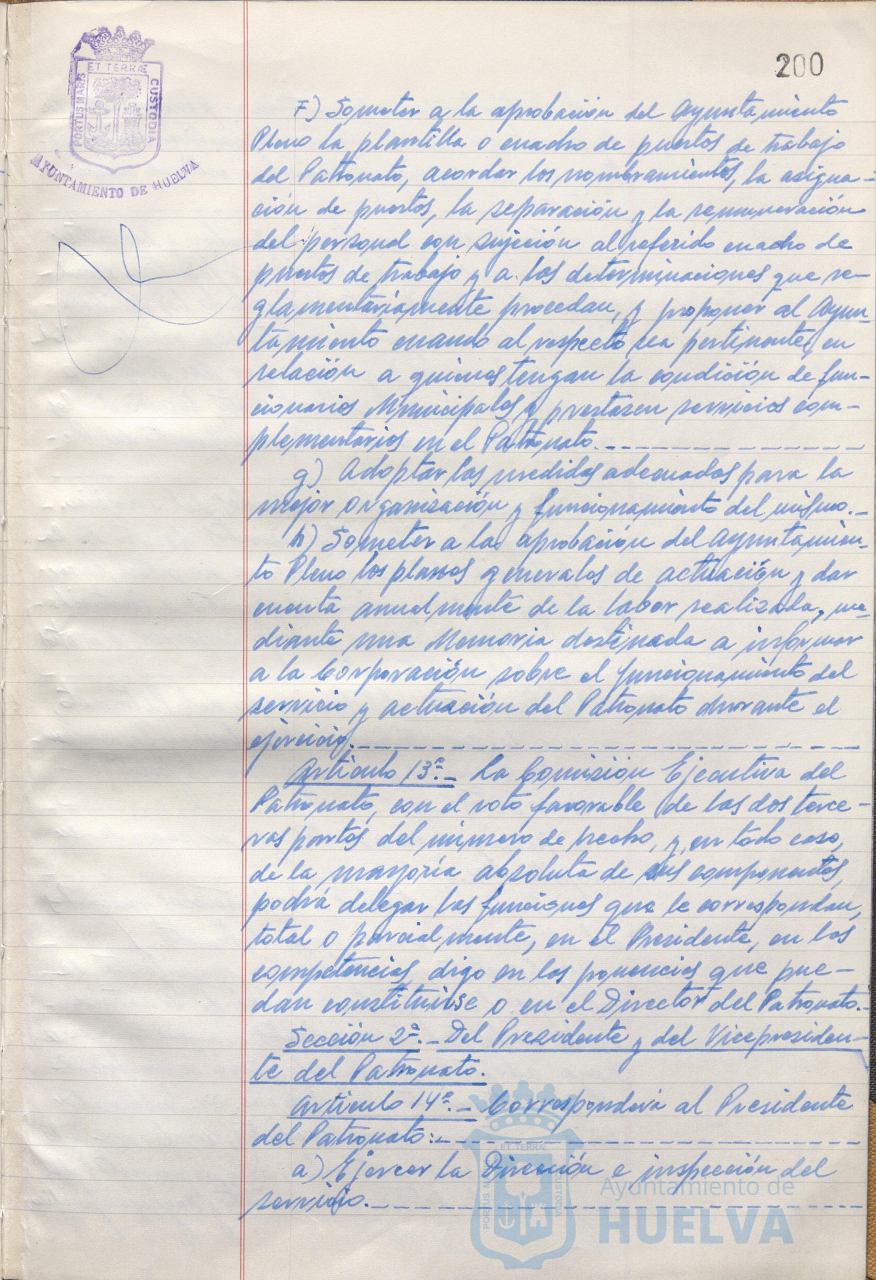 200
PORTUS MARIS
ET TERRÆ
CUSTODIA
AYUNTAMIENTO DE HUELVA
F) Someter a la aprobación del Ayuntamiento
Pleno la plantilla o cuadro de puestos de trabajo
del Patronato, acordar los nombramientos, la asigna-
ción de puestos, la separación y la remuneración
del personal con sujeción al referido cuadro de
puestos de trabajo y a las determinaciones que re-
glamentariamente procedan, y proponer al Ayun-
tamiento cuando al respecto sea pertinente, en
relación a quienes tengan la condición de fun-
cionarios Municipales y prestasen servicios com-
plementarios en el Patronato.
g) Adoptar las medidas adecuadas para la
mejor organización y funcionamiento del mismo.-
h) Someter a la aprobación del Ayuntamien-
to Pleno los planos generales de actuación y dar
cuenta anualmente de la labor realizada, me-
diante una Memoria destinada a informar
a la Corporación sobre el funcionamiento del
servicio y actuación del Patronato durante el
ejercicio.
Artículo 13º.- La Comisión Ejecutiva del
Patronato, con el voto favorable de las dos terce-
ras partes del número de hecho, y, en todo caso,
de la mayoría absoluta de sus componentes,
podrá delegar las funciones que le correspondan,
total o parcialmente, en el Presidente, en las
competencias, digo en las ponencias que pue-
dan constituirse o en el Director del Patronato.-
Sección 2ª.- Del Presidente y del Vicepresiden-
te del Patronato.
Artículo 14º.- Corresponderá al Presidente
del Patronato:-
a) Ejercer la Dirección e inspección del
servicio.
PORTUS MARIS
ET TERRÆ
CUSTODIA
Ayuntamiento de
HUELVA